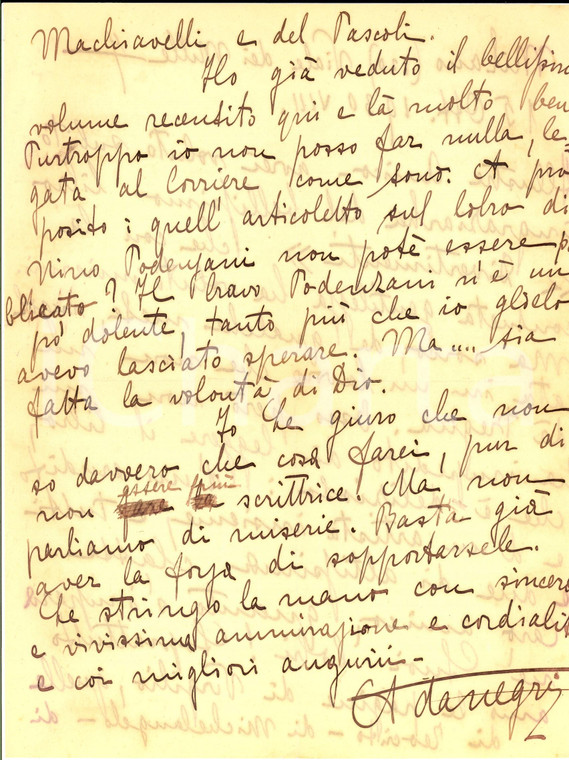 Machiavelli e del Pascoli.
Ho già veduto il bellissim
volume recensito qui e là molto ben
Purtroppo io non posso far nulla, le-
gata al Corriere come sono. A pro
posito: quell' articoletto sul lobro di
Nino Podenzani non potè essere p
blicato? Il bravo Podenzani si è un
po' dolente, tanto più che io glielo
avevo lasciato sperare. Ma.... sia
fatta la volontà di Dio.
Io Le giuro che non
so davvero che cosa farei, pur di
non essere più scrittrice. Ma non
parliamo di miserie. Basta già
aver la forza di sopportarsele.
Le stringo la mano con sincera
e vivissima ammirazione e cordialit
e coi migliori auguri -
Ada Negri